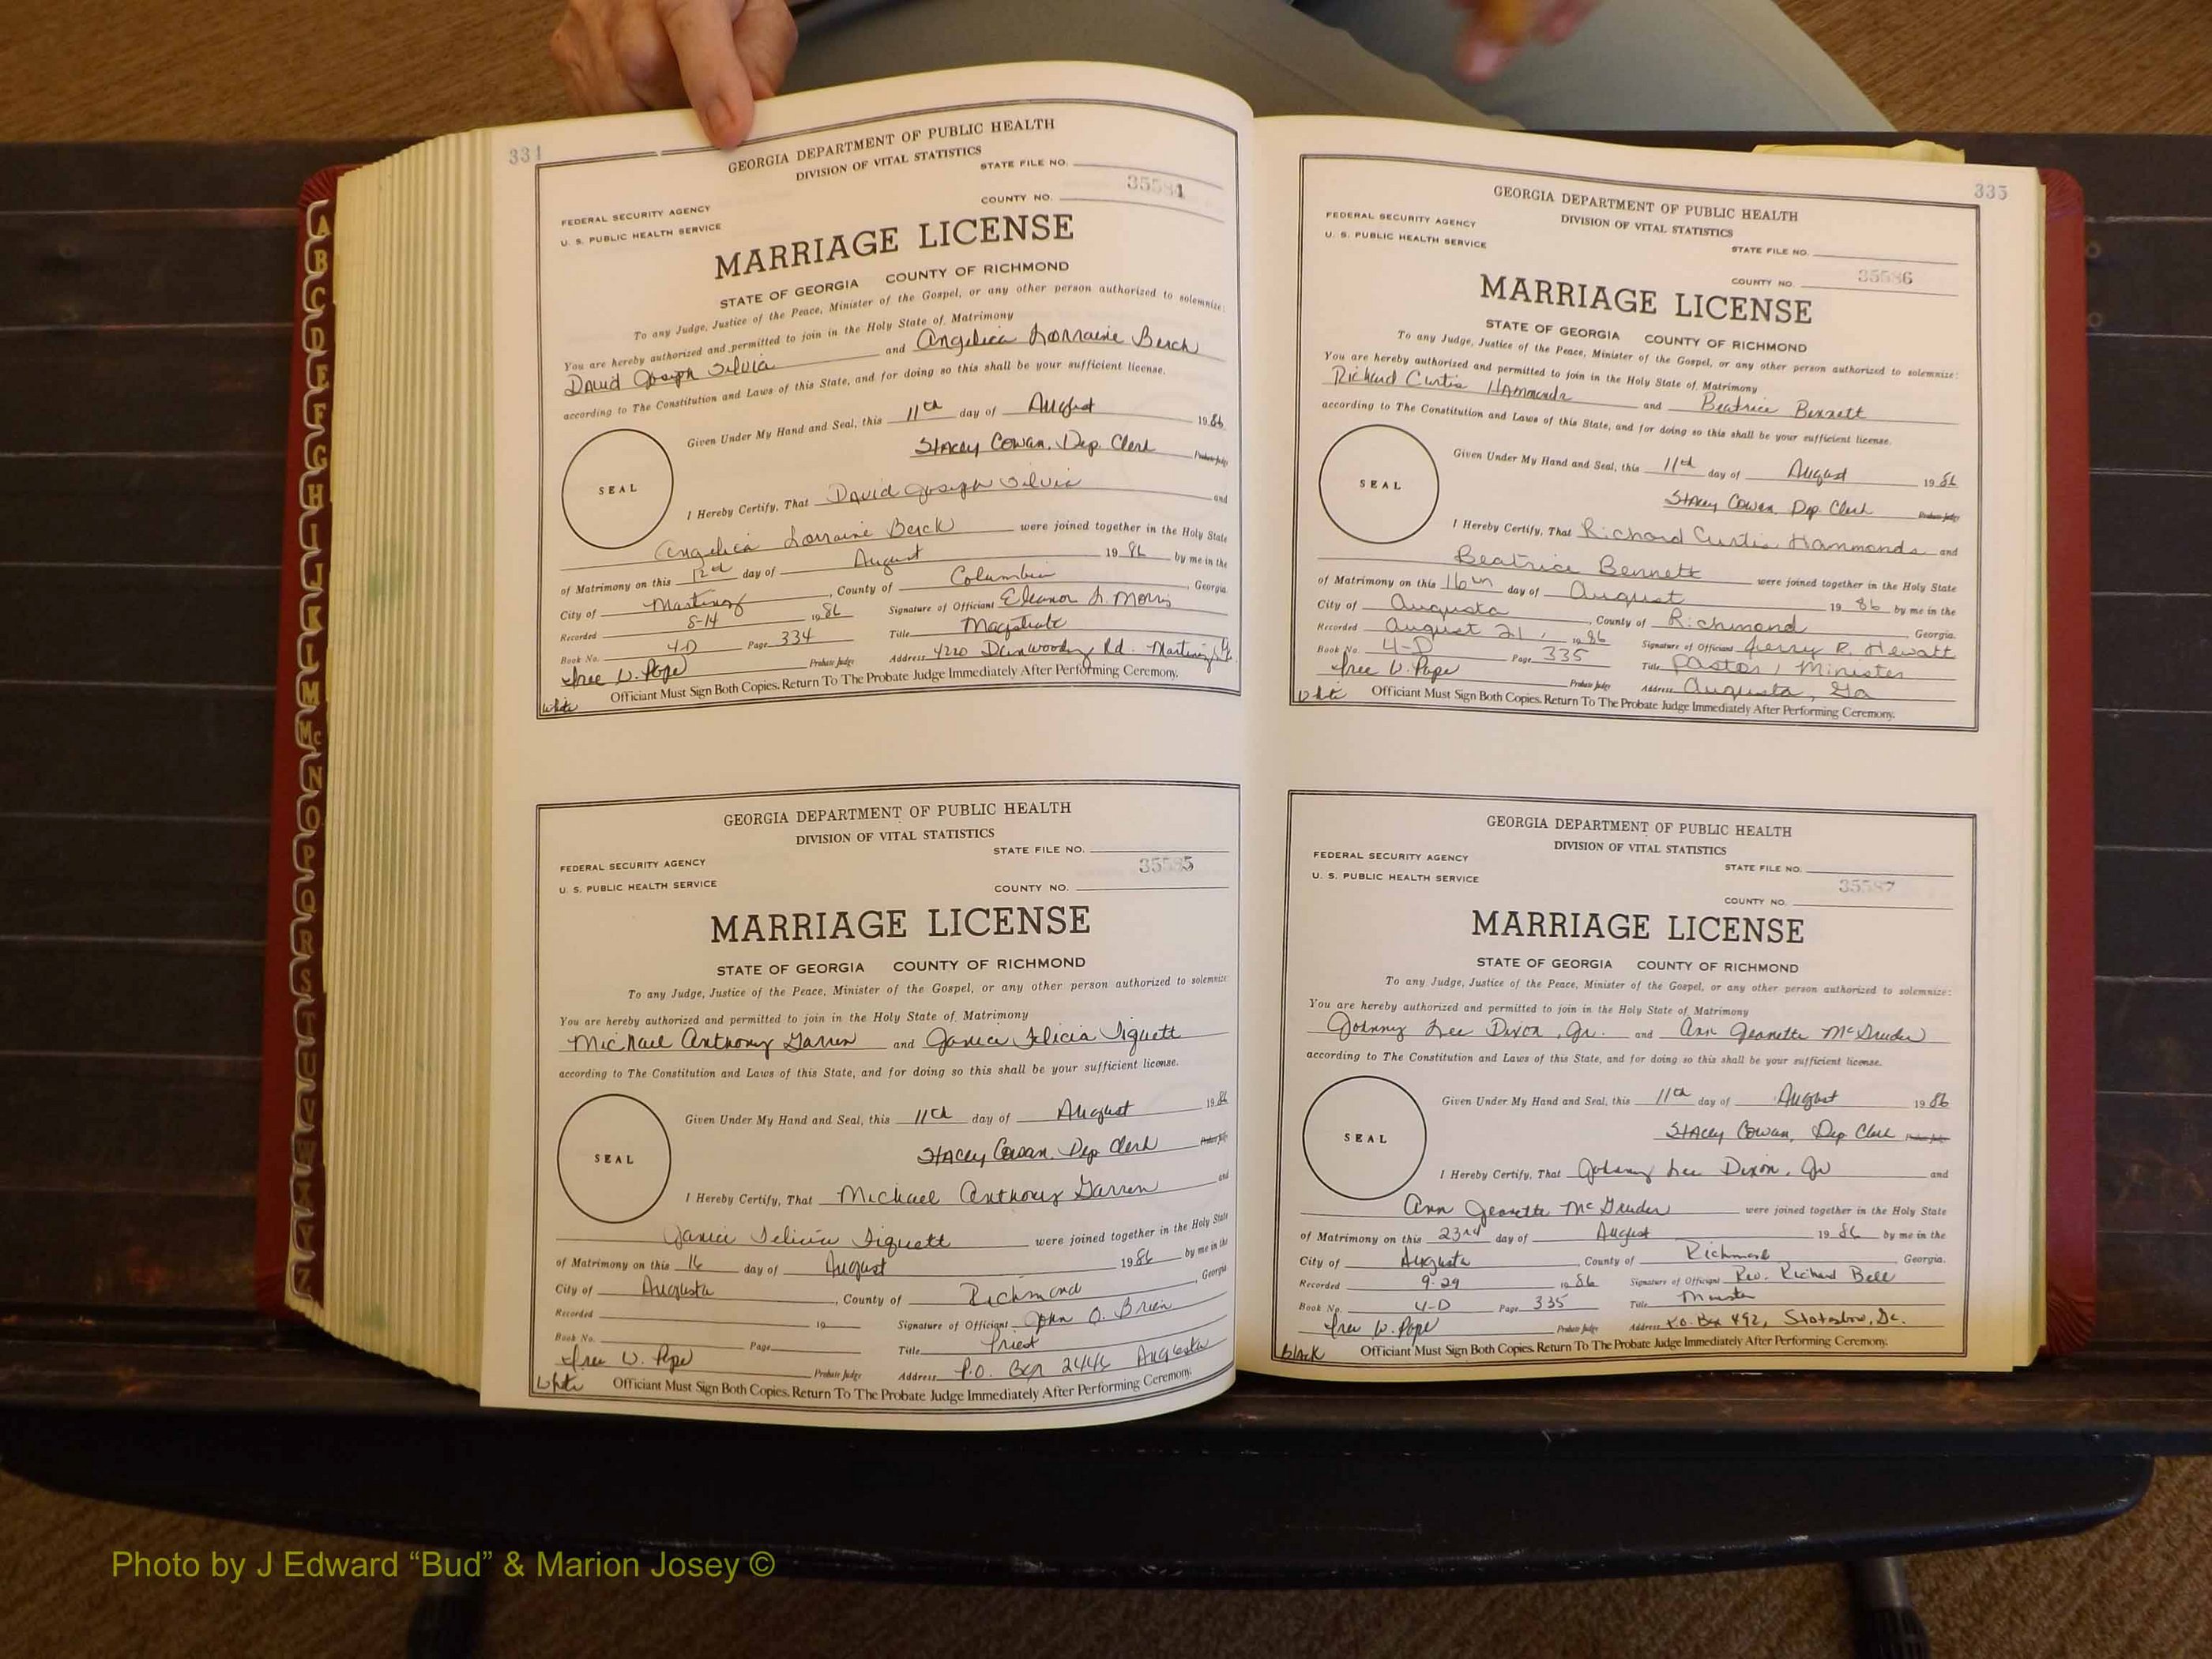 334
GEORGIA DEPARTMENT OF PUBLIC HEALTH
DIVISION OF VITAL STATISTICS
STATE FILE NO.
35584
FEDERAL SECURITY AGENCY
COUNTY NO.
U. S. PUBLIC HEALTH SERVICE
MARRIAGE LICENSE
STATE OF GEORGIA COUNTY OF RICHMOND
To any Judge, Justice of the Peace, Minister of the Gospel, or any other person authorized to solemnize:
You are hereby authorized and permitted to join in the Holy State of Matrimony
David Joseph Silvia and Angelica Lorraine Berck
according to The Constitution and Laws of this State, and for doing so this shall be your sufficient license.
Given Under My Hand and Seal, this 11th day of August 1986
Stacey Cowan, Dep Clerk Probate Judge
SEAL
I Hereby Certify, That David Joseph Silvia and
Angelica Lorraine Berck were joined together in the Holy State
of Matrimony on this 12th day of August 1986 by me in the
City of Martinez, County of Columbia, Georgia.
Recorded 8-14 1986 Signature of Officiant Eleanor L. Morris
Book No. 4-D Page 334 Title Magistrate
W. Pope Probate Judge Address 4220 Dunwoody Rd. Martinez, Ga.
White Officiant Must Sign Both Copies. Return To The Probate Judge Immediately After Performing Ceremony.
GEORGIA DEPARTMENT OF PUBLIC HEALTH
DIVISION OF VITAL STATISTICS
STATE FILE NO.
35585
FEDERAL SECURITY AGENCY
U. S. PUBLIC HEALTH SERVICE
COUNTY NO.
MARRIAGE LICENSE
STATE OF GEORGIA COUNTY OF RICHMOND
To any Judge, Justice of the Peace, Minister of the Gospel, or any other person authorized to solemnize:
You are hereby authorized and permitted to join in the Holy State of Matrimony
Michael Anthony Garren and Janice Felicia Tiquett
according to The Constitution and Laws of this State, and for doing so this shall be your sufficient license.
Given Under My Hand and Seal, this 11th day of August 1986
Stacey Cowan, Dep Clerk Probate Judge
SEAL
I Hereby Certify, That Michael Anthony Garren and
Janice Felicia Tiquett were joined together in the Holy State
of Matrimony on this 16 day of August 1986 by me in the
City of Augusta, County of Richmond, Georgia
Recorded 19 Signature of Officiant John O. Brien
Book No. Page Title Priest
W. Pope Probate Judge Address P.O. Box 2446 Augusta
White Officiant Must Sign Both Copies. Return To The Probate Judge Immediately After Performing Ceremony.
335
GEORGIA DEPARTMENT OF PUBLIC HEALTH
DIVISION OF VITAL STATISTICS
FEDERAL SECURITY AGENCY
U. S. PUBLIC HEALTH SERVICE
STATE FILE NO.
35586
COUNTY NO.
MARRIAGE LICENSE
STATE OF GEORGIA COUNTY OF RICHMOND
To any Judge, Justice of the Peace, Minister of the Gospel, or any other person authorized to solemnize:
You are hereby authorized and permitted to join in the Holy State of Matrimony
Richard Curtis Hammonds and Beatrice Bennett
according to The Constitution and Laws of this State, and for doing so this shall be your sufficient license.
Given Under My Hand and Seal, this 11th day of August 1986
Stacey Cowan, Dep Clerk Probate Judge
SEAL
I Hereby Certify, That Richard Curtis Hammonds and
Beatrice Bennett were joined together in the Holy State
of Matrimony on this 16th day of August 1986 by me in the
City of Augusta, County of Richmond Georgia.
Recorded August 21, 1986 Signature of Officiant Jerry R. Hewatt
Book No. 4-D Page 335 Title Pastor, Minister
W. Pope Probate Judge Address Augusta, Ga
White Officiant Must Sign Both Copies. Return To The Probate Judge Immediately After Performing Ceremony.
GEORGIA DEPARTMENT OF PUBLIC HEALTH
DIVISION OF VITAL STATISTICS
FEDERAL SECURITY AGENCY
STATE FILE NO.
U. S. PUBLIC HEALTH SERVICE
35587
COUNTY NO.
MARRIAGE LICENSE
STATE OF GEORGIA COUNTY OF RICHMOND
To any Judge, Justice of the Peace, Minister of the Gospel, or any other person authorized to solemnize:
You are hereby authorized and permitted to join in the Holy State of Matrimony
Johnny Lee Dixon, Jr. and Ann Jeanette McGruder
according to The Constitution and Laws of this State, and for doing so this shall be your sufficient license.
Given Under My Hand and Seal, this 11th day of August 1986
Stacey Cowan, Dep Clerk Probate Judge
SEAL
I Hereby Certify, That Johnny Lee Dixon, Jr and
Ann Jeanette McGruder were joined together in the Holy State
of Matrimony on this 23rd day of August 1986 by me in the
City of Augusta, County of Richmond Georgia.
Recorded 9-29 1986 Signature of Officiant Rev. Richard Bell
Book No. 4-D Page 335 Title Minister
W. Pope Probate Judge Address P.O. Box 492,
Black Officiant Must Sign Both Copies. Return To The Probate Judge Immediately After Performing Ceremony.
A B C D E F G H I J K L M Mc N O P Q R S T U V W X Y Z
Photo by J Edward “Bud” & Marion Josey ©